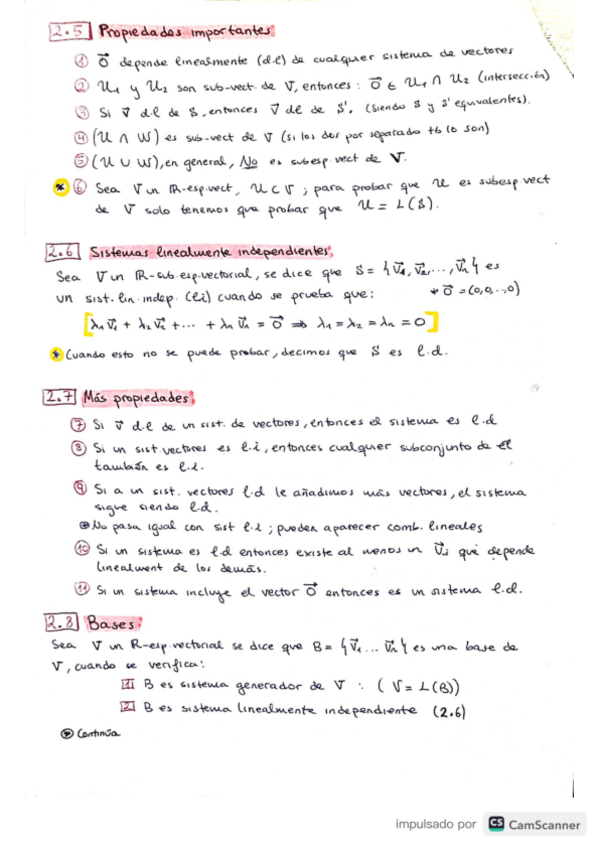 2.5 Propiedades importantes:
① O⃗ depende linealmente (d.l) de cualquier sistema de vectores
② U₁ y U₂ son sub-vect. de V, entonces: O⃗ ∈ U₁ ∩ U₂ (intersección)
③ Si v⃗ d.l de S, entonces v⃗ dl de S'. (siendo S y S' equivalentes).
④ (U ∩ W) es sub-vect de V (si los dos por separado tb lo son)
⑤ (U ∪ W), en general, No es subesp. vect de V.
* ⑥ Sea V un R-esp.vect, U ⊂ V ; para probar que U es subesp vect
de V solo tenemos que probar que U = L(S).
2.6 Sistemas linealmente independientes:
Sea V un R-sub.esp.vectorial, se dice que S = {v⃗₁, v⃗₂, ..., v⃗ₙ} es
un sist. lin. indep. (l.i) cuando se prueba que: * O⃗ = (0,0,...,0)
[λ₁v⃗₁ + λ₂v⃗₂ + ... + λₙv⃗ₙ = O⃗ ⇒ λ₁ = λ₂ = λₙ = 0]
* Cuando esto no se puede probar, decimos que S es l.d.
2.7 Más propiedades:
⑦ Si v⃗ d.l de un sist. de vectores, entonces el sistema es l.d
⑧ Si un sist vectores es l.i, entonces cualquer subconjunto de él
también es l.i.
⑨ Si a un sist. vectores l.d le añadimos más vectores, el sistema
sigue siendo l.d.
No pasa igual con sist l.i ; pueden aparecer comb. lineales
⑩ Si un sistema es l.d entonces existe al menos un v⃗ᵢ que depende
linealment de los demás.
⑪ Si un sistema incluye el vector O⃗ entonces es un sistema l.d.
2.8 Bases:
Sea V un R-esp.vectorial se dice que B = {v⃗₁ ... v⃗ₙ} es una base de
V, cuando se verifica:
1 B es sistema generador de V : (V = L(B))
2 B es sistema linealmente independiente (2.6)
Continúa
impulsado por CS CamScanner